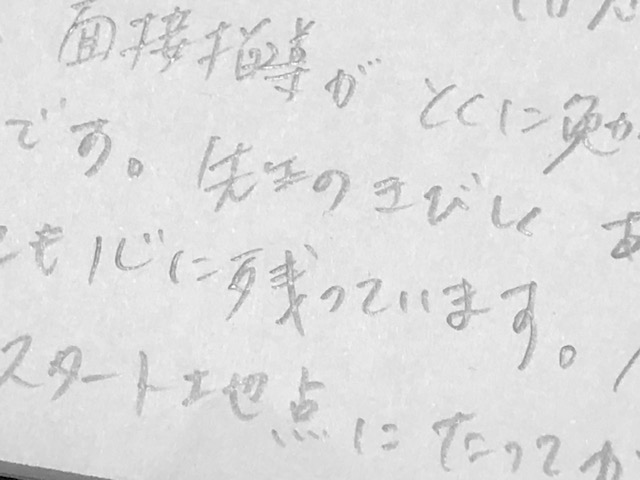 面接指導が とくに勉
です。先生のきびしく あ
とも心に残っています。
スタート地点にたってか